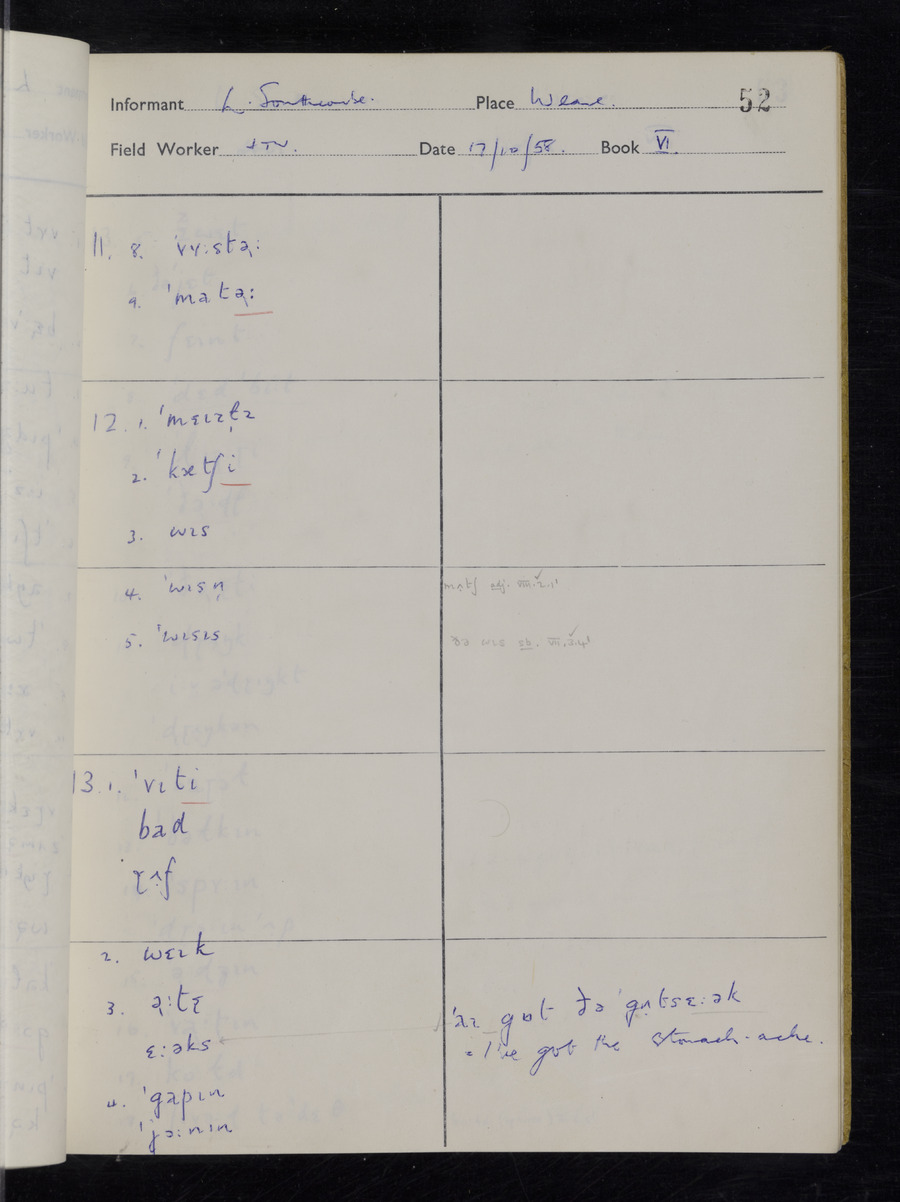 Informant L. Southcombe. Place Weare. 52
Field Worker JTW. Date 17/10/58. Book VI
11. 8. ˈvʏːstəː
9. ˈmatəː
12. 1. ˈmɛɪzt̩ɪ
2. ˈkætʃi
3. wɪs
4. ˈwɪsn̩
5. ˈwɪsɪs
adj.
ðə wɪs sb.
13. 1. ˈvɪti
bad
ɽʌf
2. wɛɪk
3. əːtɛ
ɛːəks
ˈaɪ gɒt ðə ˈgʌtsɛːək
= I've got the stomach-ache.
4. ˈgapɪn
ˈjɔːnɪn